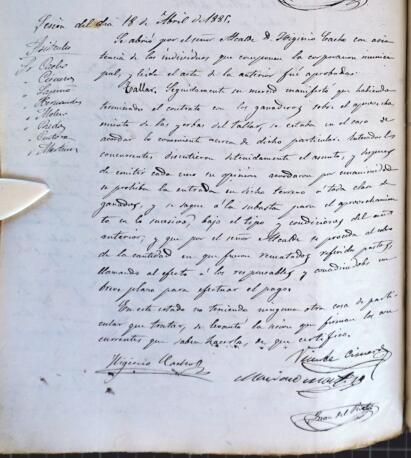 Sesion del dia 18 de Abril de 1881.
Asistentes
Sr. Cacho
" Cisneros
" Hernandez
" Molero
" Prieto
" Martinez
Se abrió por el señor Alcalde D. Higinio Cacho con asis
tencia de los individuos que componen la corporacion munici
pal, y leida el acta de la anterior fué aprobada.
Tallar. Seguidamente su merced manifestó que habiendo
terminado el contrato con los ganaderos sobre el aprovecha
miento de las yerbas del tallar, se estaba en el caso de
acordar lo conveniente acerca de dicho particular. Enterados los
concurrentes, discutieron detenidamente el asunto, y despues
de emitir cada uno su opinion acordaron por unanimidad
se prohiba la entrada en dicho terreno á toda clase de
ganados, y se saque á la subasta para el aprovechamien
to en lo sucesivo, bajo el tipo y condiciones del año
anterior; y que por el señor Alcalde se proceda al cobro
de la cantidad en que fueron rematados referidos pastos,
llamando al efecto á los responsables y un
breve plazo para efectuar el pago.
En este estado no teniendo ninguna otra cosa de parti
cular que tratar, se levantó la sesion que firman los con
currentes que saben hacerlo, de que certifico.
Higinio Cacho
Vicente Cisneros
Mariano
Juan del Prieto